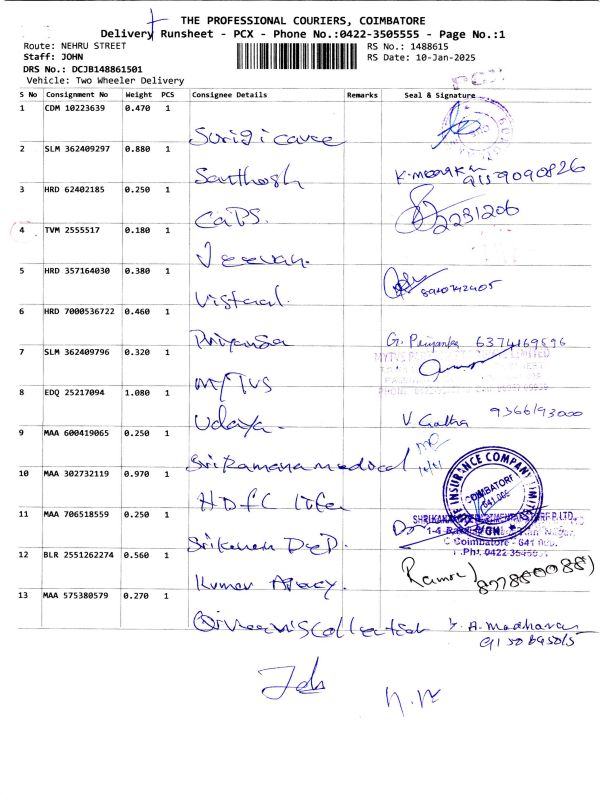 THE PROFESSIONAL COURIERS, COIMBATORE
Delivery Runsheet - PCX - Phone No.:0422-3505555 - Page No.:1
Route: NEHRU STREET
RS No.: 1488615
Staff: JOHN
RS Date: 10-Jan-2025
DRS No.: DCJB148861501
Vehicle: Two Wheeler Delivery
S No Consignment No Weight PCS Consignee Details Remarks Seal & Signature
1 CDM 10223639 0.470 1
2 SLM 362409297 0.880 1
Santhosh
K. 9159090826
3 HRD 62402185 0.250 1
CaPS.
2231206
4 TVM 2555517 0.180 1
Jeevan.
5 HRD 357164030 0.380 1
Vistaal.
6 HRD 7000536722 0.460 1
Priyansa
G. Priyanka 6374169596
7 SLM 362409796 0.320 1
MyTVS
8 EDQ 25217094 1.080 1
Udaya.
V 9366193000
9 MAA 600419065 0.250 1
Sri Ramana medical
10 MAA 302732119 0.970 1
HDFC life
INSURANCE COMPANY LIMITED
COIMBATORE
11 MAA 706518559 0.250 1
Coimbatore - 641
Ph: 0422
12 BLR 2551262274 0.560 1
Kumar
13 MAA 575380579 0.270 1
Collection
A. Madhavan